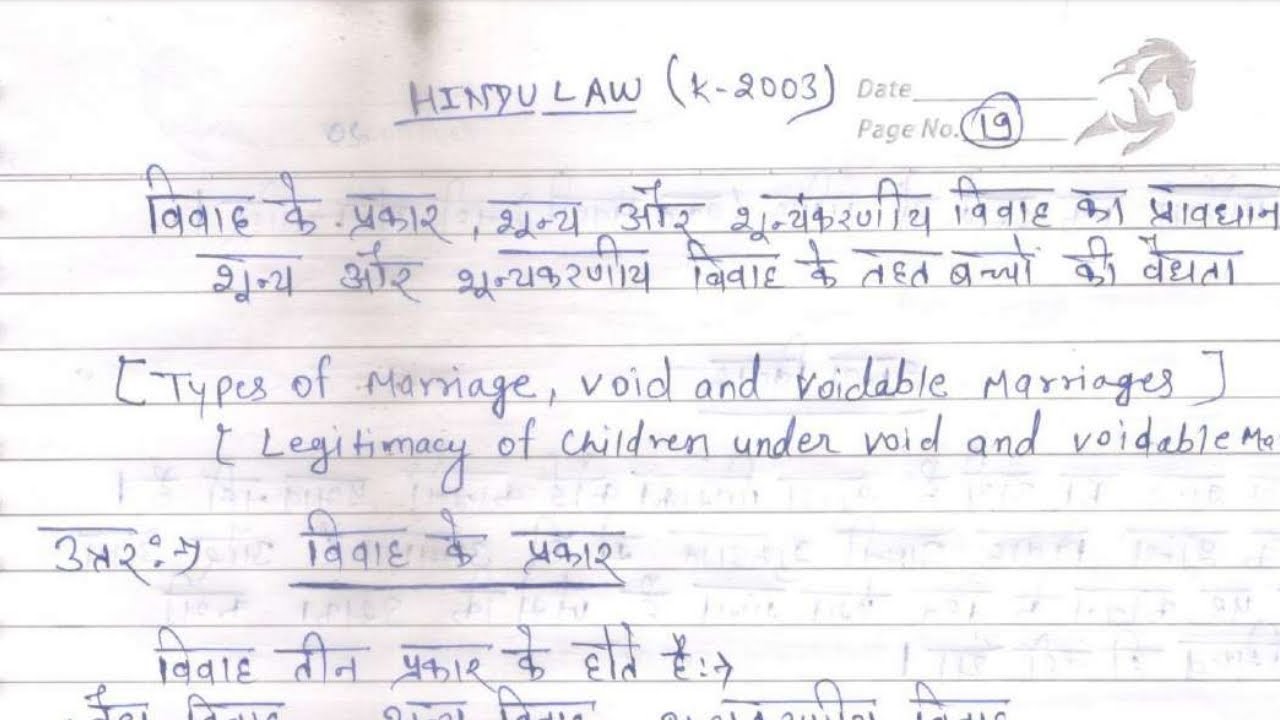 HINDU LAW (K-2003) Date
Page No. 19
विवाह के प्रकार, शून्य और शून्यकरणीय विवाह का प्रावधान
शून्य और शून्यकरणीय विवाह के तहत बच्चो की वैधता
[Types of Marriage, void and voidable Marriages]
[Legitimacy of Children under void and voidable Ma
उत्तर:→ विवाह के प्रकार
विवाह तीन प्रकार के होते है:→
विवाह शून्य विवाह विवाह